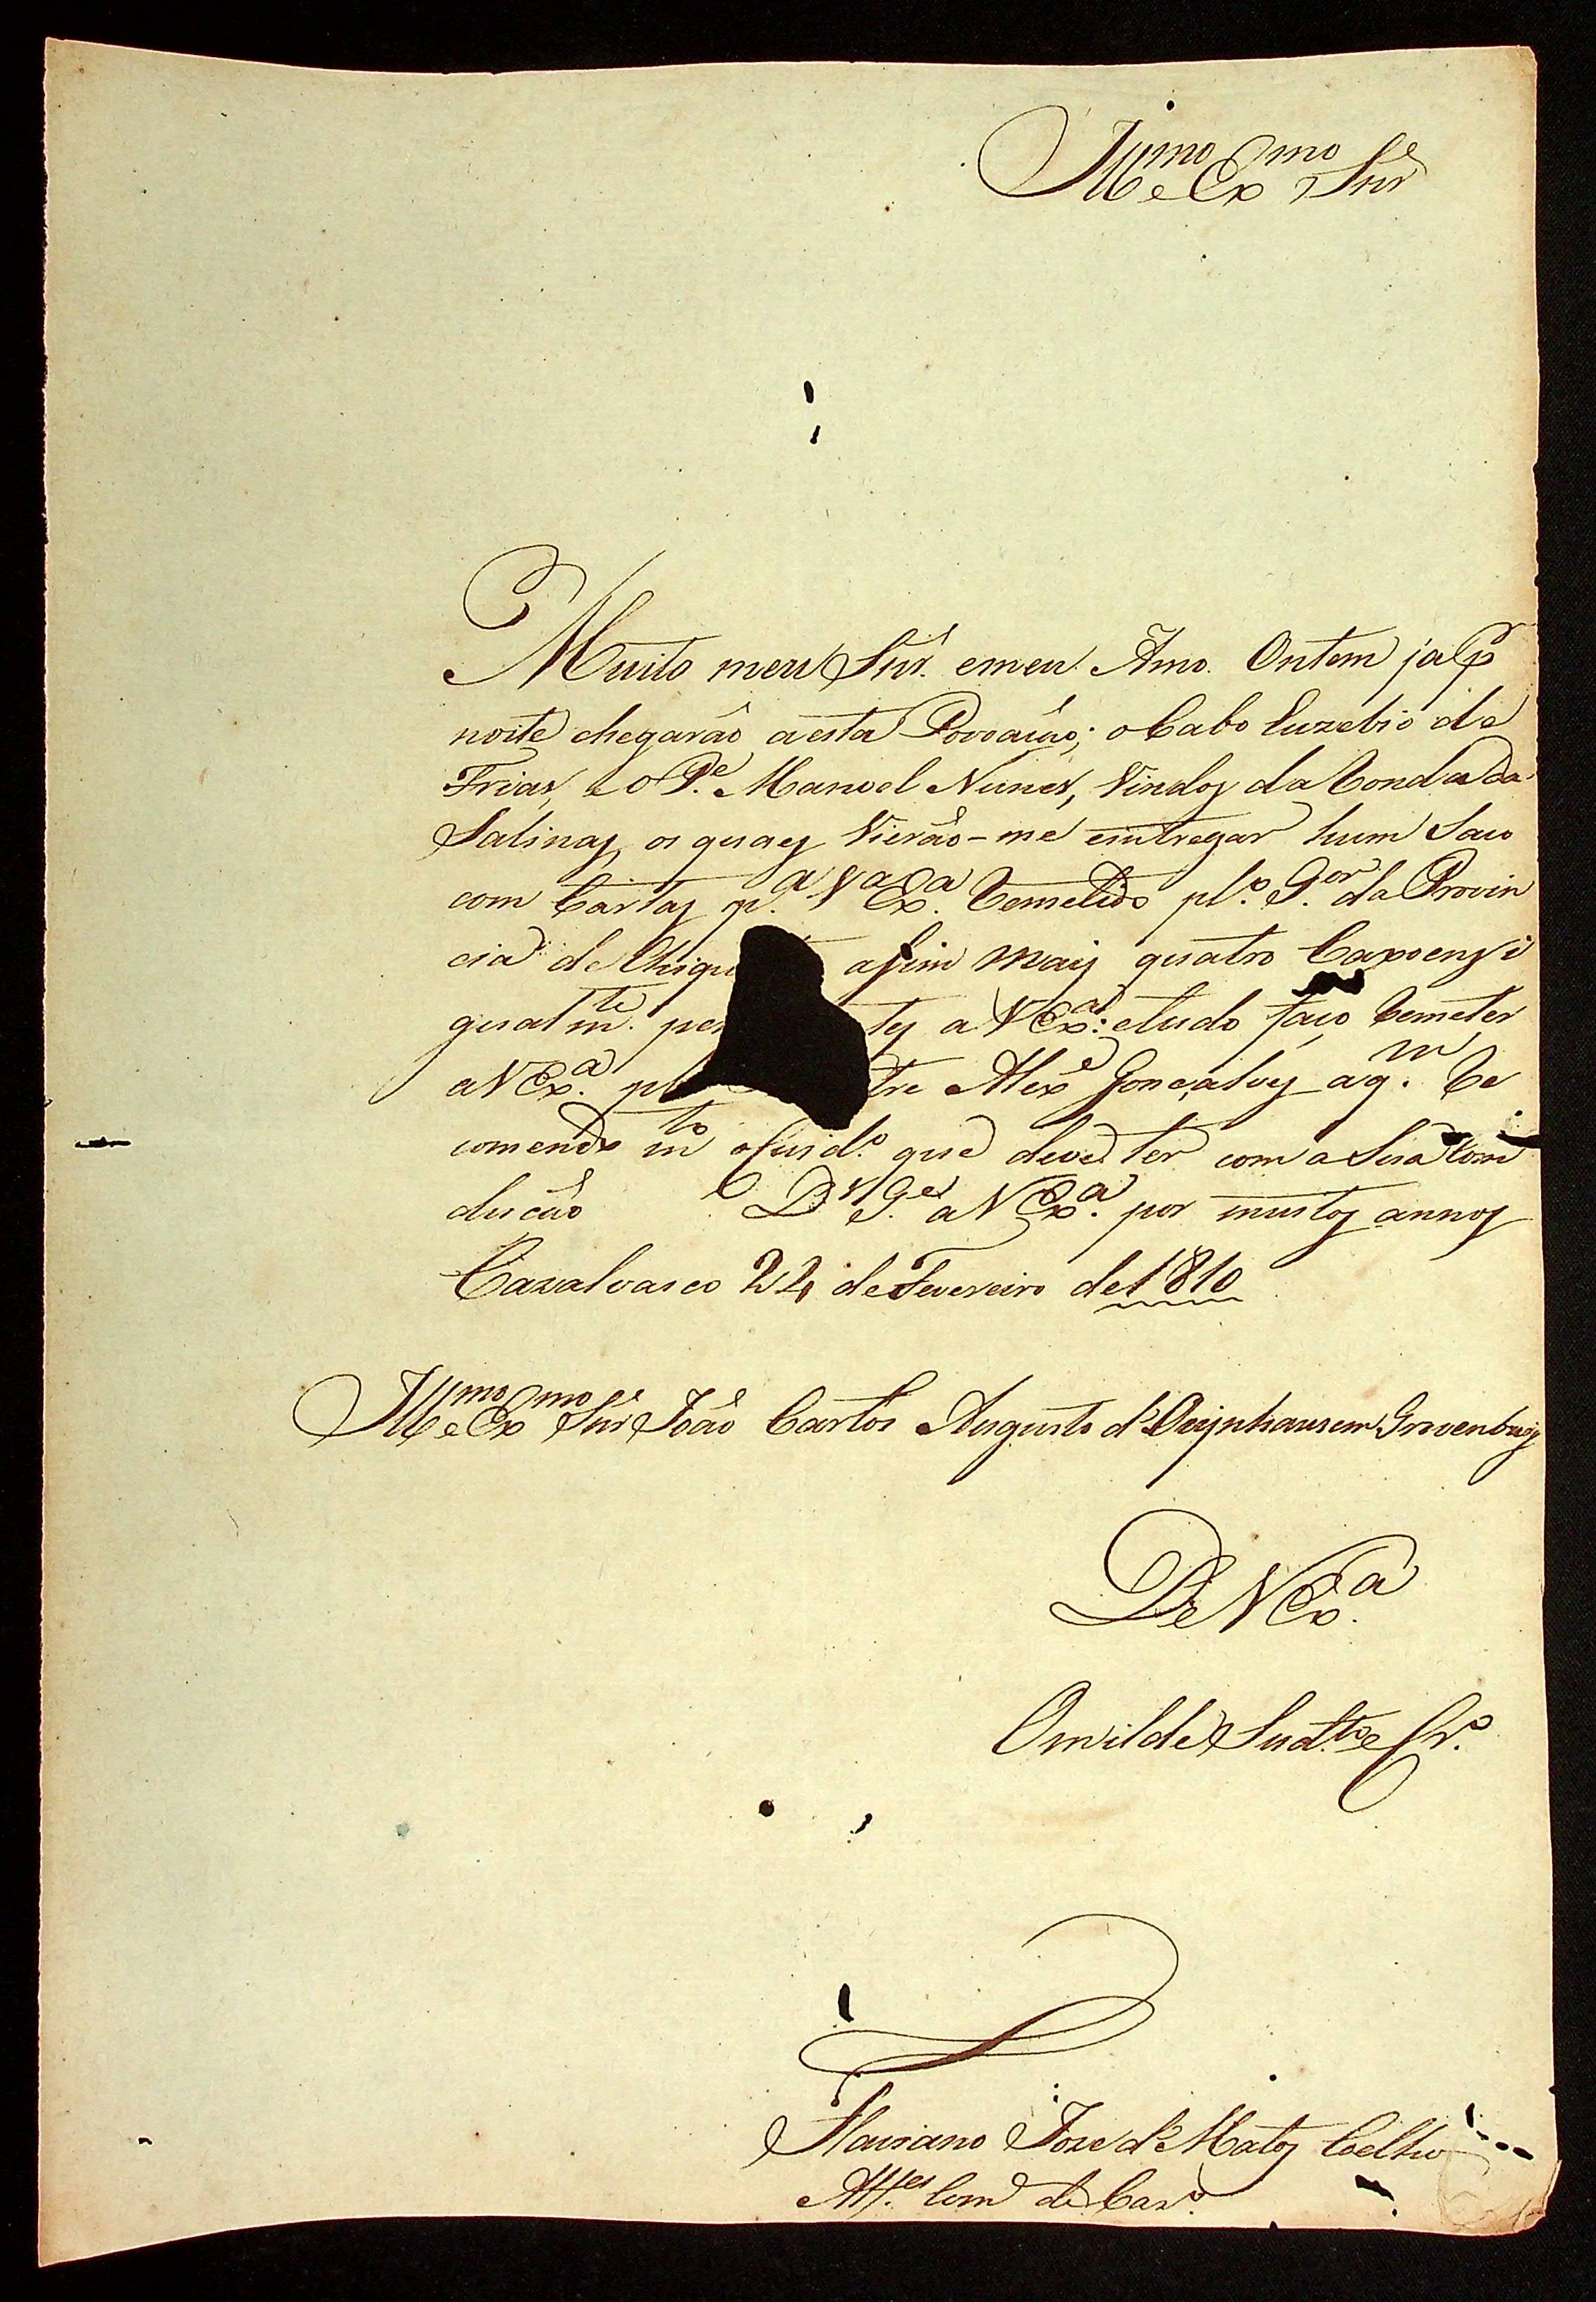 Ill.mo e Ex.mo Snr'
Muito meu Snr. e meu Amo. Ontem ja p.r
noite chegarão a esta Povoação; o Cabo Euzebio de
Frias, e o P.e Manoel Nunes, Vindos da Ronda da
Salinas, os quaes Vierão-me emtregar hum Saco
com Cartas p.a V.a Ex.a Remetido pl.o G.or da Provin
cia de Chiqu afim mais quatro Caxoens i
gualm.te per tes a V Ex.a: e tudo faço Remeter
a V Ex.a pl tre Alex.e Gonçalves a q.m Re
comendo m.to o Cuid.o que deve ter com a Sua Con
ducão D.s G.e a V Ex.a por muitos annos
Cazalvasco 24 de Fevereiro de 1810
Ill.mo e Ex.mo Snr' João Carlos Augusto d'Oeynhausem Grevenburg
De V Ex.a
O mil de Sud.to e Cr.o
Flaviano Joze d'Matos Coelho
Alf.es Com.e de Caz.o